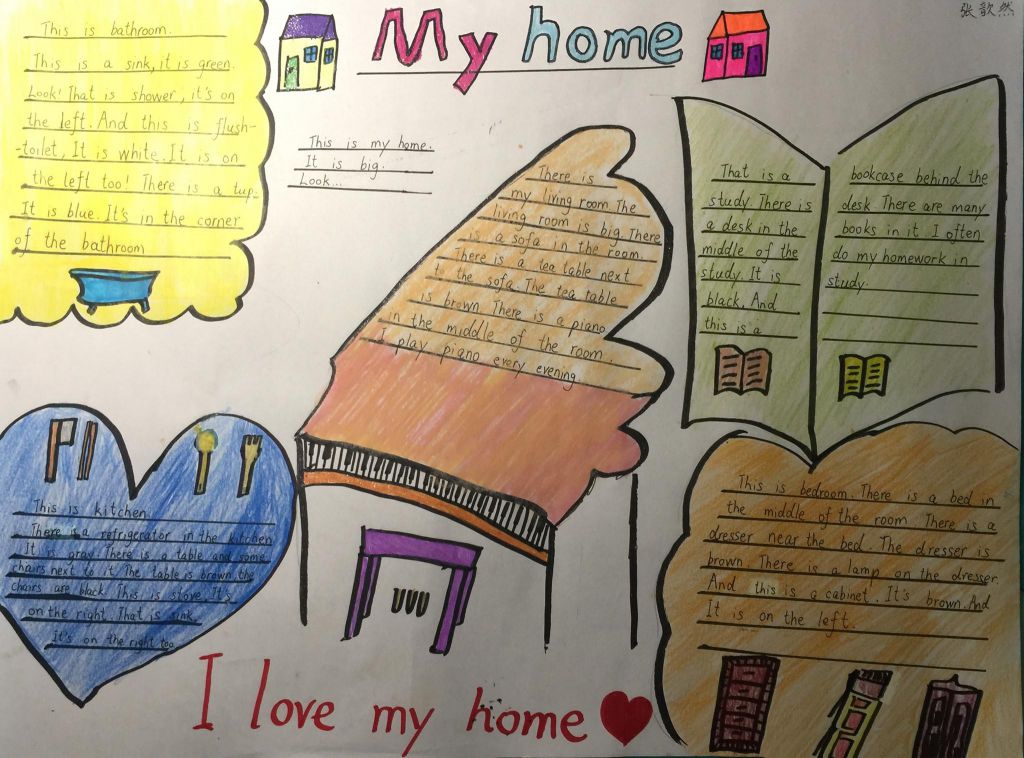 My home
张歆然
This is bathroom.
This is a sink, it is green.
Look! That is shower, it's on
the left. And this is flush-
-toilet, It is white. It is on
the left too! There is a tup.
It is blue. It's in the corner
of the bathroom
This is my home.
It is big.
Look...
There is
my living room. The
living room is big. There
is a sofa in the room.
There is a tea table next
to the sofa. The tea table
is brown. There is a piano
in the middle of the room.
I play piano every evening.
That is a
study. There is
a desk in the
middle of the
study. It is
black. And
this is a
bookcase behind the
desk. There are many
books in it. I often
do my homework in
study.
This is kitchen
There is a refrigerator in the kitchen
It is gray. There is a table and some
chairs next to it. The table is brown. the
chairs are black. This is stove. It's
on the right. That is sink.
It's on the right too.
This is bedroom. There is a bed in
the middle of the room. There is a
dresser near the bed. The dresser is
brown. There is a lamp on the dresser.
And this is a cabinet. It's brown. And
It is on the left.
I love my home